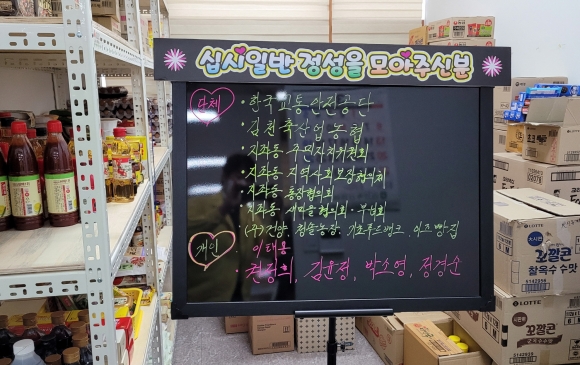 십시일반 정성을 모아주신분
단체
· 한국교통안전공단
· 김천축산업농협
· 지좌동 주민자치위원회
· 지좌동 지역사회보장협의체
· 지좌동 통장협의회
· 지좌동 새마을협의회·부녀회
· (주)건양, 참솔농장, 기초푸드뱅크, 아즈빵집
개인
이태용
· 권경희, 김윤정, 박소영, 정경순
LOTTE
꼬깔콘
찰옥수수맛
LOTTE
꼬깔콘